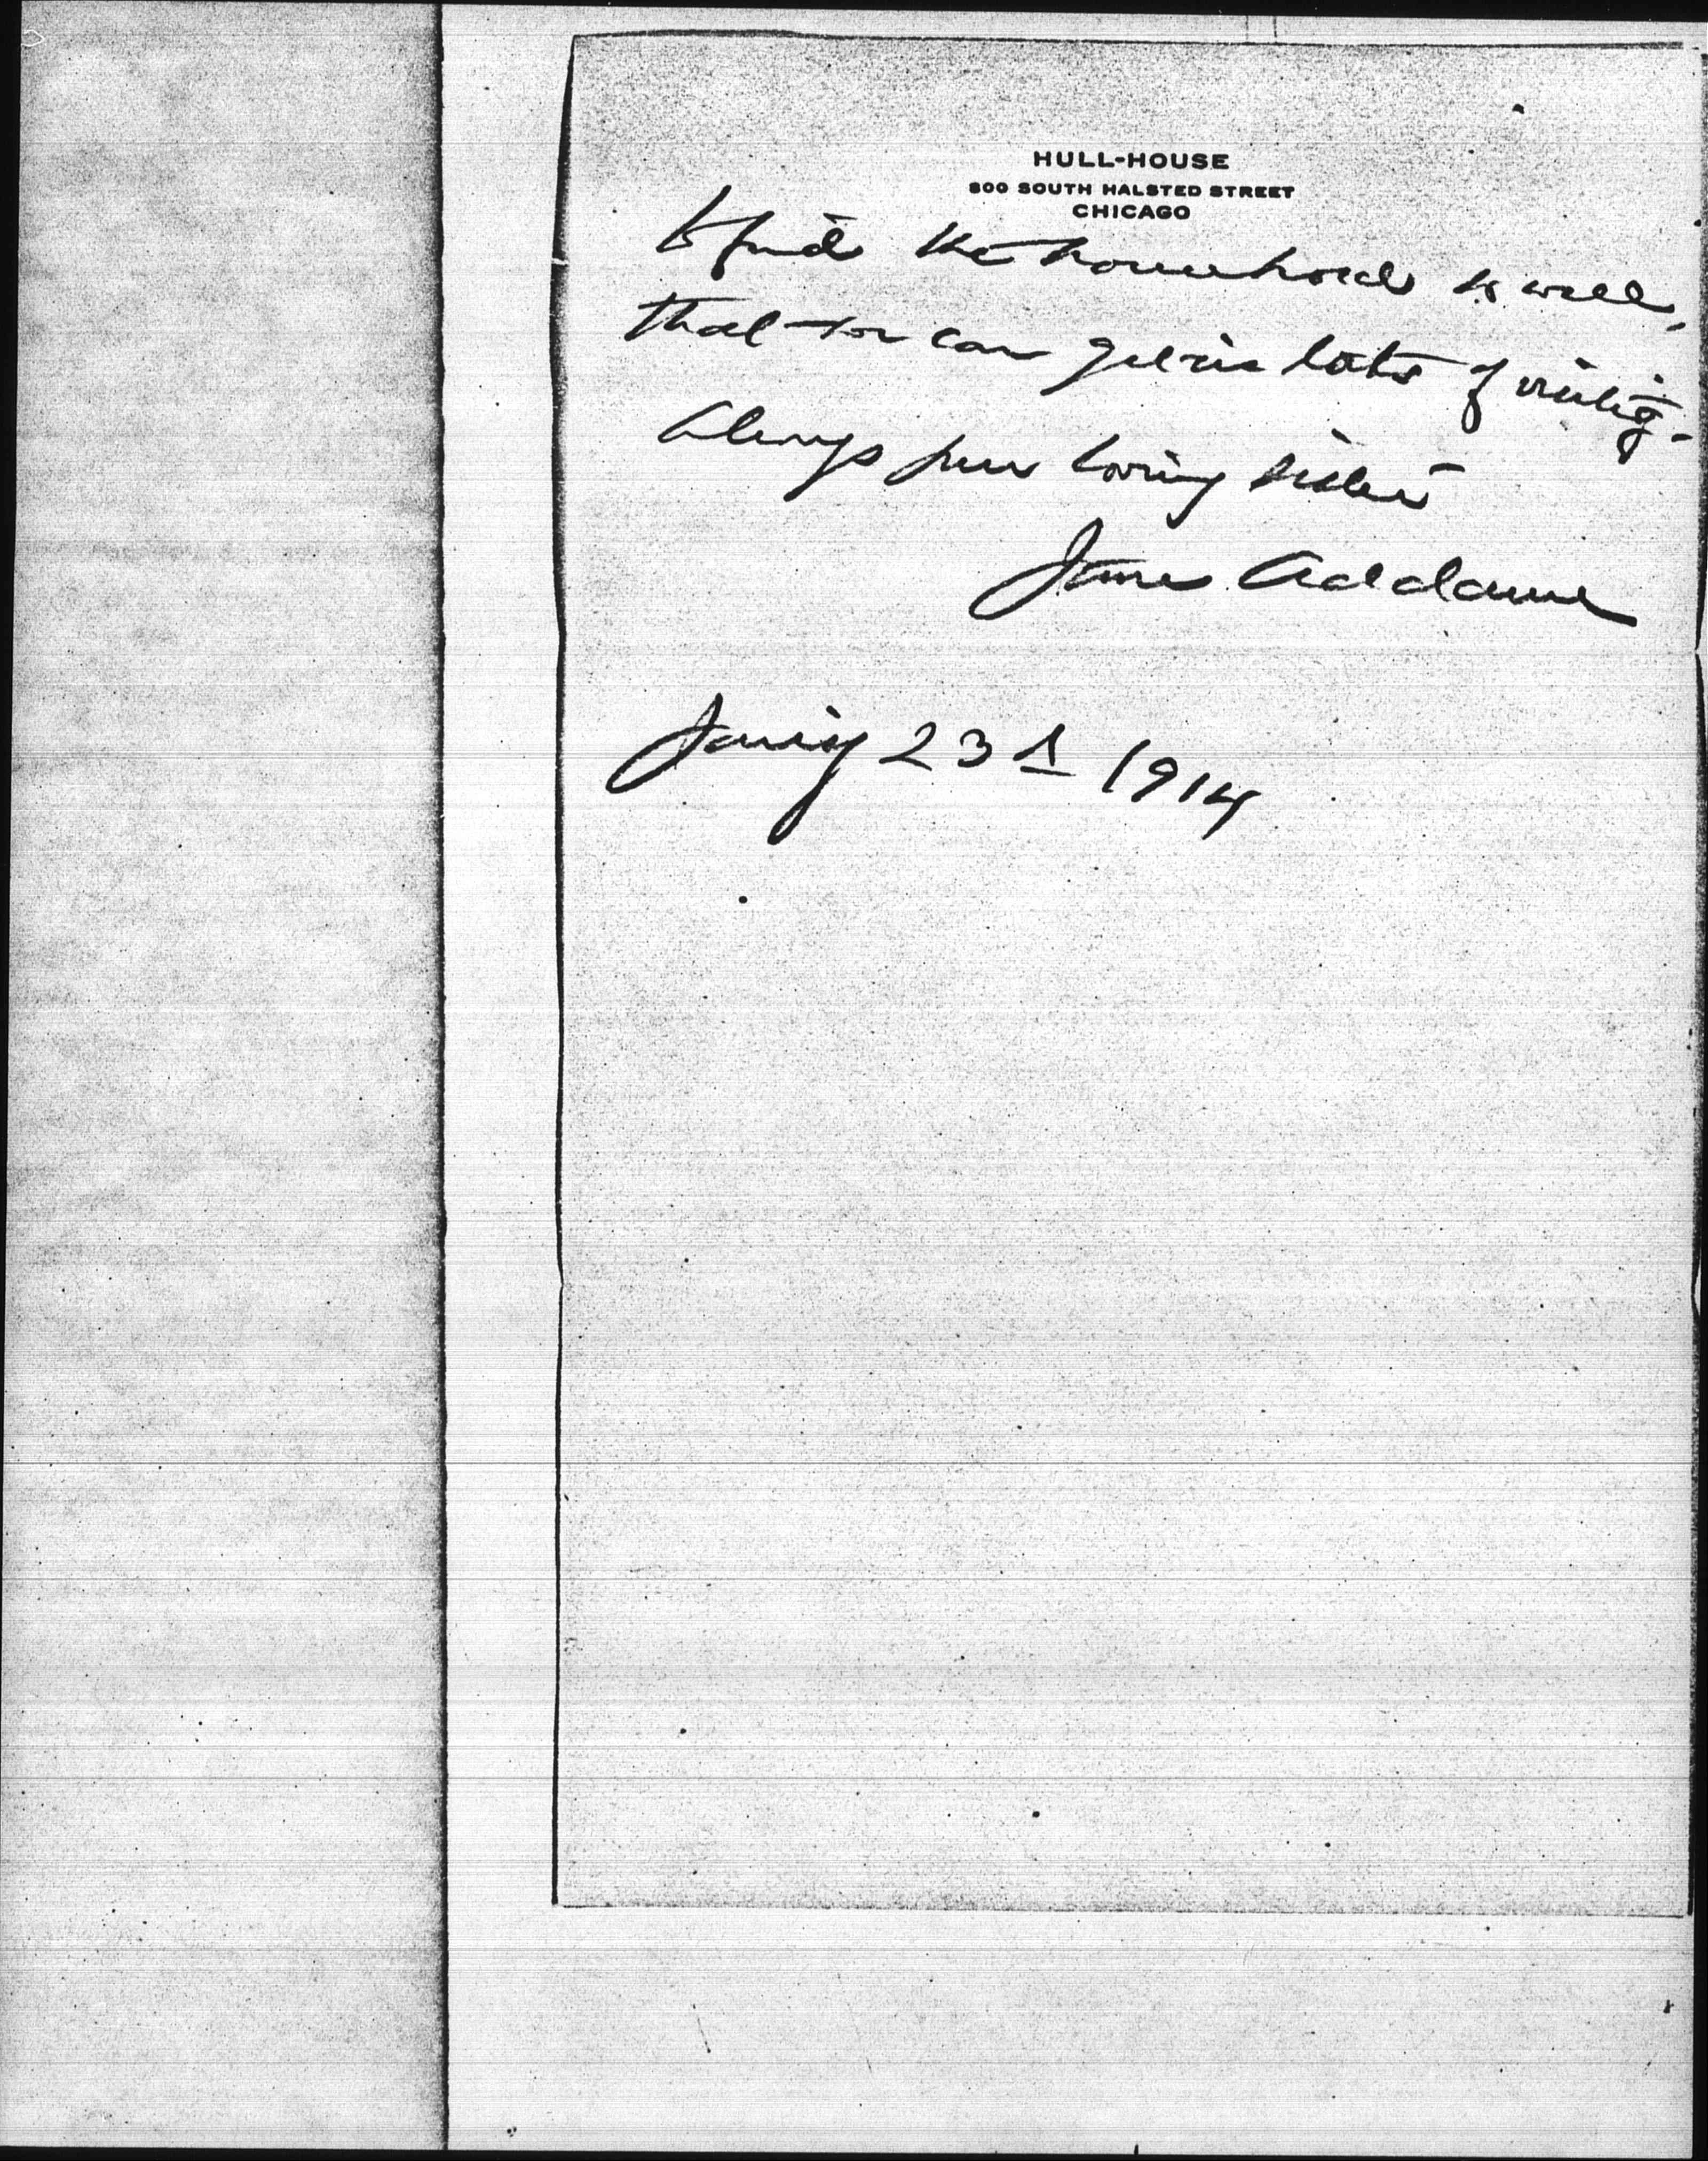 HULL-HOUSE
800 SOUTH HALSTED STREET
CHICAGO
to find the household so well,
that you can get in lots of visiting.
Always your loving sister
Jane Addams
Jan'y 23d 1914